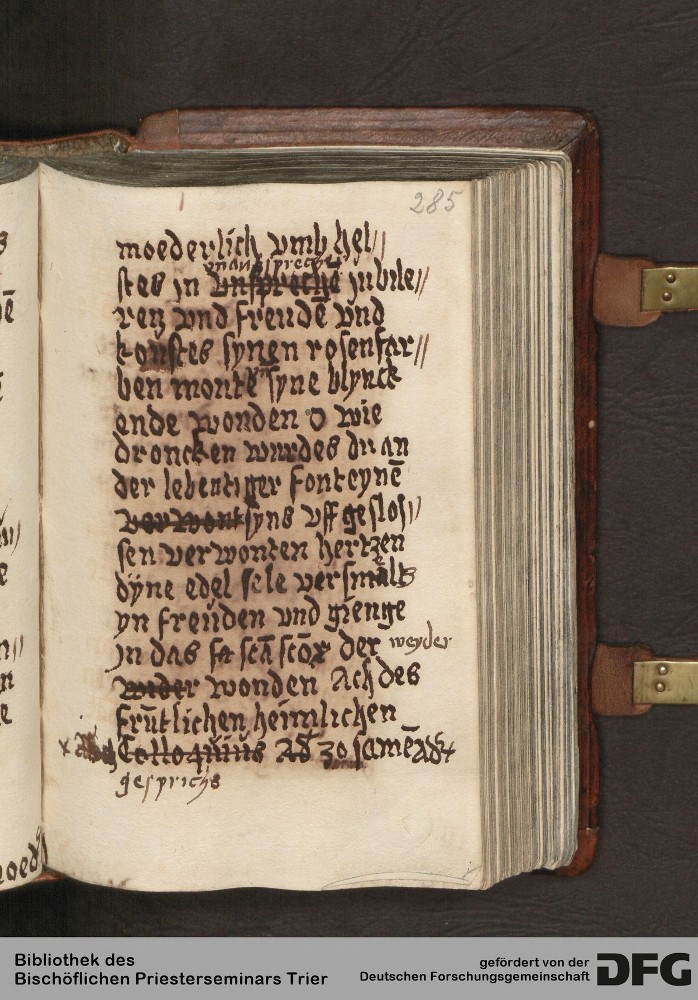 285
moederlich vmb hel//
onausprechē
stes jn vnsprechē jubile//
ren vnd freudē vnd
konstes synen rosenfar//
ben monte syne blynck
ende wonden o wie
droncken wurdes du an
der lebentiger fonteynē
verwont syns vff geslos//
sen verwonten hertzen
dÿne edel sele versmāltz
yn freuden vnd gienge
jn das sa scā scōr der weyder
wider wonden Ach des
frūtlichen heimlichen
Colloquiūs Ad zosamē
gesprichs
Bibliothek des
Bischöflichen Priesterseminars Trier
gefördert von der
Deutschen Forschungsgemeinschaft
DFG